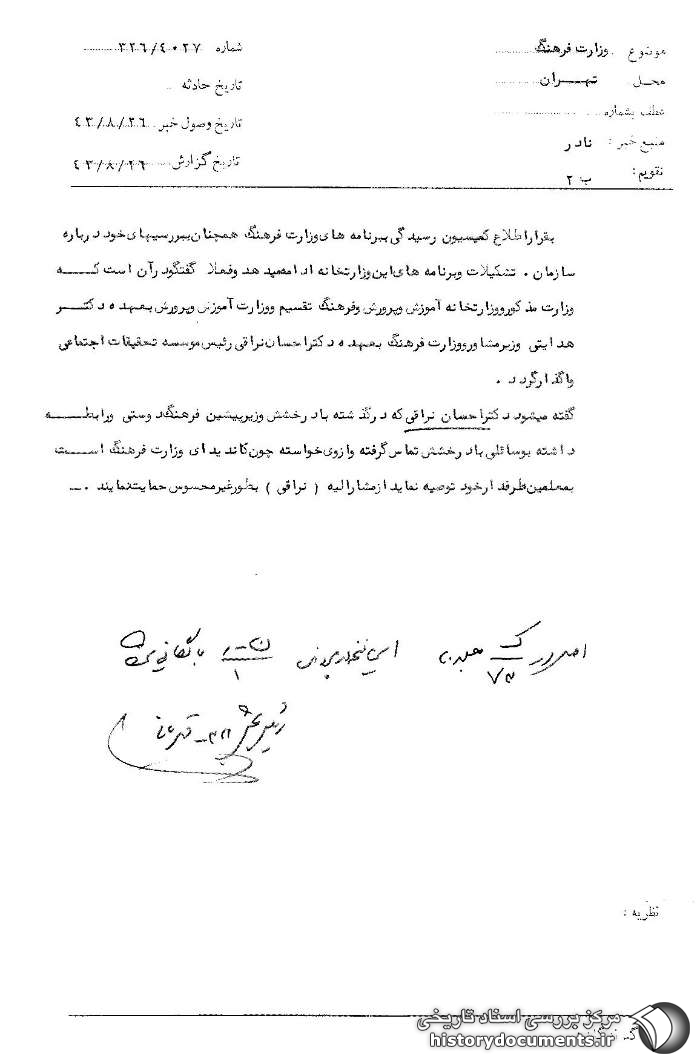 موضوع وزارت فرهنگ
شماره ۳۲۶/۴۰۲۷
محل تهران
تاریخ حادثه
عطف بشماره
تاریخ وصول خبر ۴۳/۸/۲۶
منبع خبر : نادر
تاریخ گزارش ۴۳/۸/۲۶
تقویم : ب ۲
بقرار اطلاع کمیسیون رسیدگی ببرنامه های وزارت فرهنگ همچنان ببررسیهای خود درباره
سازمان . تشکیلات وبرنامه های این وزارتخانه ادامه میدهد وفعلا گفتگو درآن است که
وزارت مذکور ووزارتخانه آموزش وپرورش وفرهنگ تقسیم ووزارت آموزش وپرورش بعهده دکتر
هدایتی وزیر مشاور ووزارت فرهنگ بعهده دکتر احسان نراقی رئیس موسسه تحقیقات اجتماعی
واگذار گردد .
گفته میشود دکتر احسان نراقی که در گذشته با درخشش وزیر پیشین فرهنگ دوستی ورابطه
داشته بوسائلی با درخشش تماس گرفته وازوی خواسته چون کاندیدای وزارت فرهنگ است
بمعلمین طرفدار خود توصیه نماید از مشارالیه ( نراقی ) بطور غیر محسوس حمایت نمایند .
۷۳
۱
نظریه :
مرکز بررسی اسناد تاریخی
historydocuments.ir